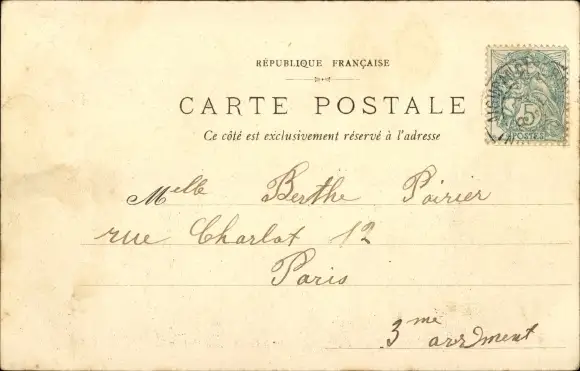 RÉPUBLIQUE FRANÇAISE
CARTE POSTALE
Ce côté est exclusivement réservé à l'adresse
5
POSTES
Melle Berthe Poirier
rue Charlot 12
Paris
3me arrdment